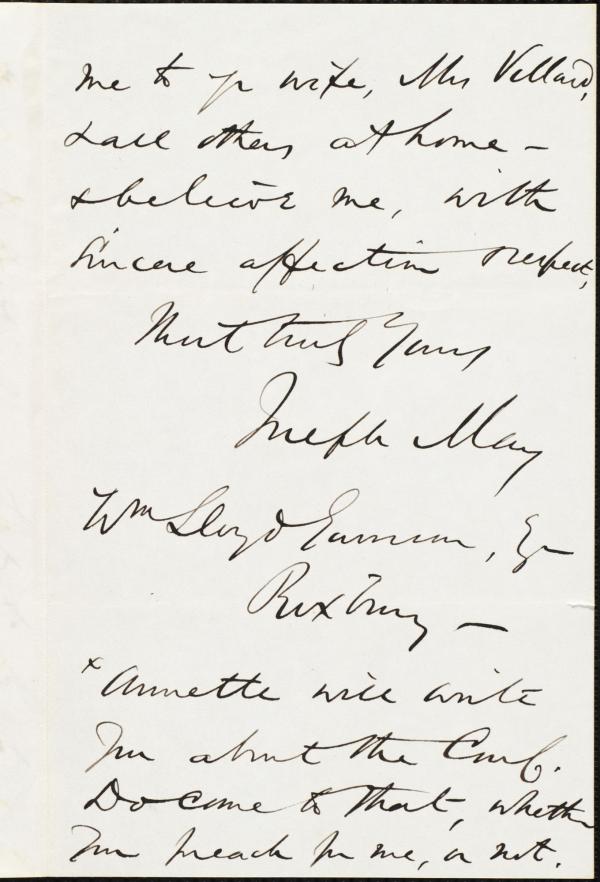 me to yr wife, Mrs Villard,
& all others at home –
& believe me, with
sincere affection & respect,
Most truly Yours
Joseph May
Wm Lloyd Garrison, Esq
Roxbury –
x Annette will write
you about the Conf.
Do come to that, whether
you preach for me, or not.